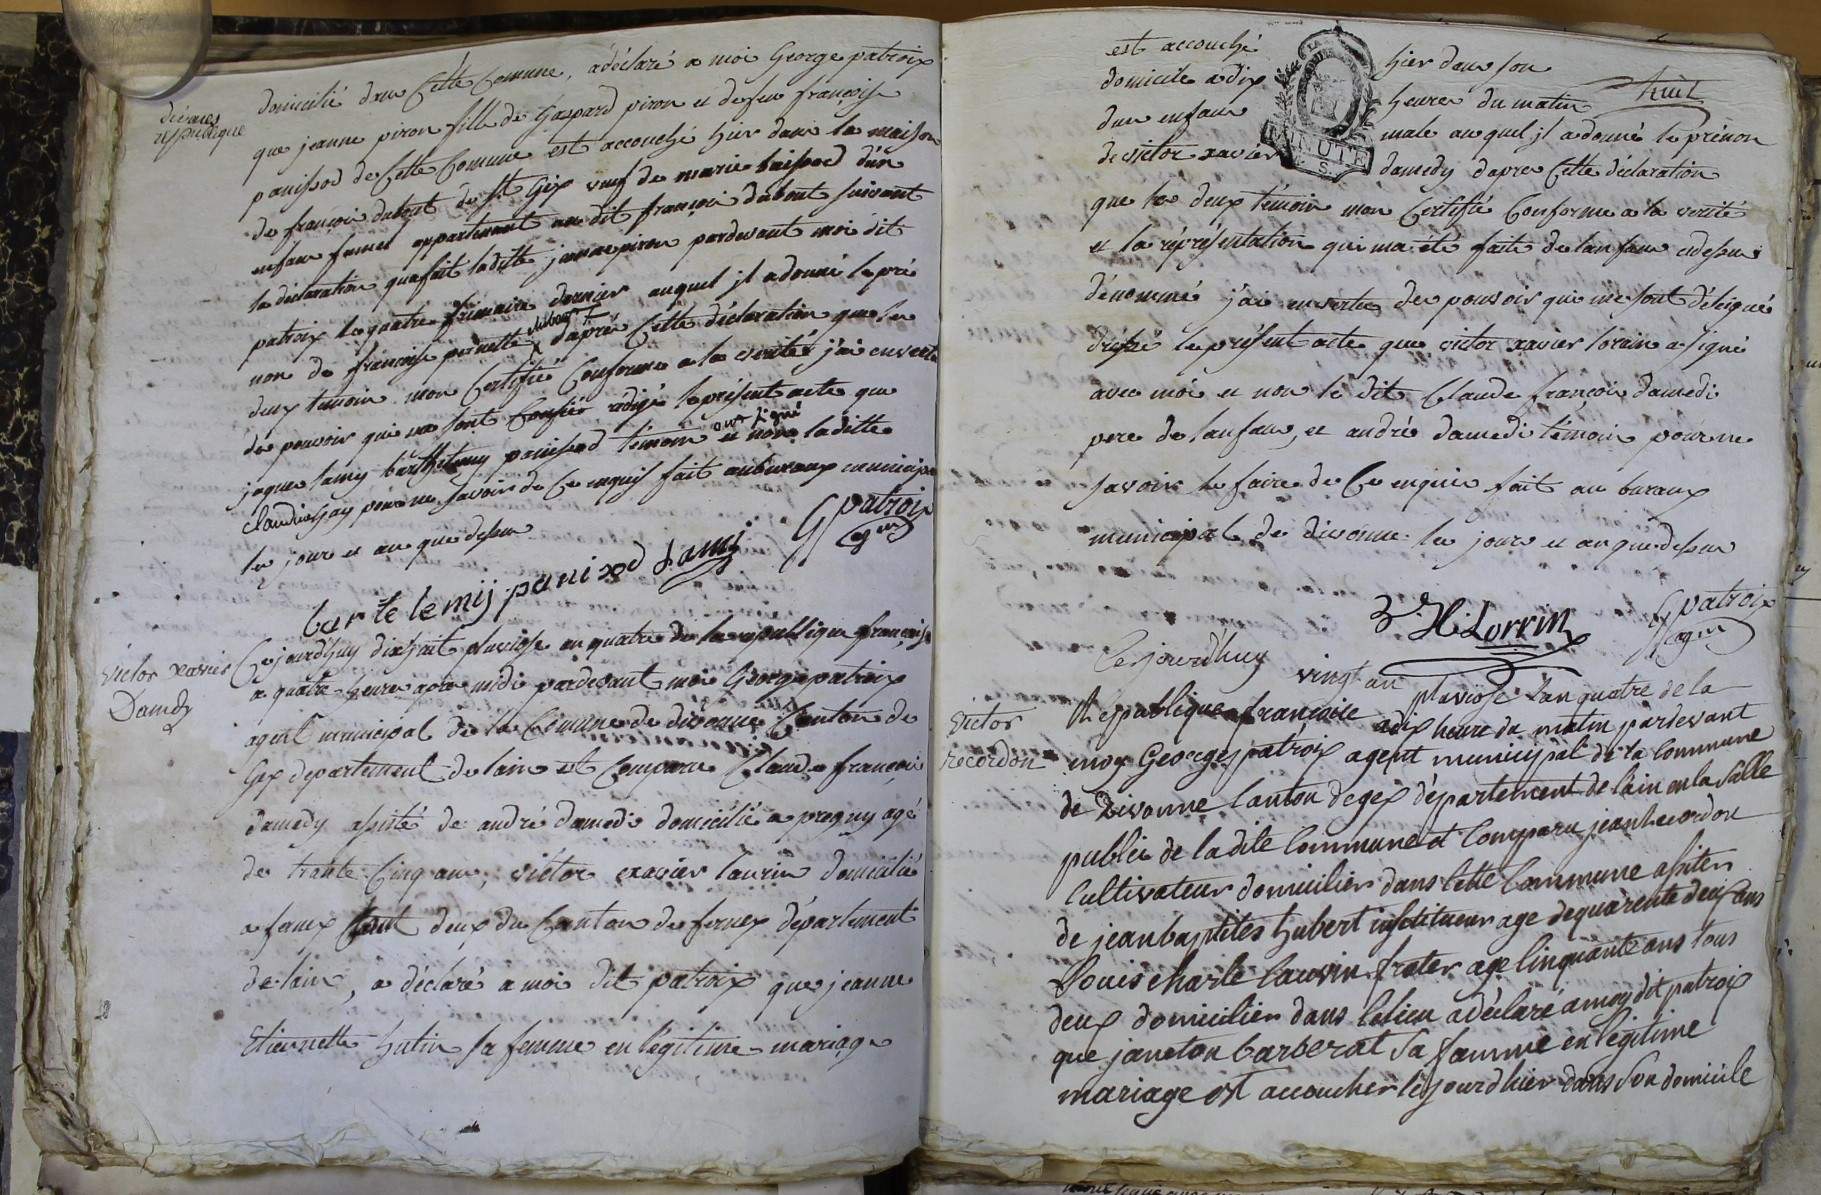 domicilié dans Cette Commune, a déclaré a moi George patroix
que jeanne piron fille de Gaspard piron et de feu françoise
panissod de Cette Commune est accouché hier dans la maison
de françois dubout de St Gix veuf de marie baissod d'un
enfant femel appartenant au dit françois dubout suivant
la déclaration qua fait laditte jeanne piron pardevant moi dit
patroix le quatre frimaire dernier auquel il a donné le pré
non de françoise pernette dubout d'après Cette déclaration que les
deux temoin mon Certifié Conforme a la verité j'ai en vertu
de pouvoir qui me sont Confiés rédigé le présent acte que
jaque lamy barthelemy panissod temoin ont signé et non laditte
Claudine gay pour ne savoir de Ce enquis fait au buraux municipal
les jour et an que dessus
G patroix
agent
barte le mij panisod Lamy
victor xavier
Damedy
Cejourdhuy dix huit pluviose an quatre de la republique française
a quatre heure apre midi pardevant moi George patroix
agent municipal de la Commune de divonne Canton de
Gex departement de lain est Comparu Claude françois
damedy assisté de andré damedi domicilié a pregny agé
de trante Cinq ans, victor xavier laurin domicilié
a faux tout deux du Canton de fernex département
de lain, a déclaré a moi dit patroix que jeanne
Etiennette hutin sa femme en légitime mariage
est accouché hier dans son
domicile a dix heures du matin
huit
dun enfant male auquel il a donné le prénon
de victor xavier damedy dapres Cette déclaration
MINUTE
que les deux témoin mon Certifié Conforme a la verité
et la réprésentation qui ma été faite de lanfant cidessus
dénommé j'ai en vertu de pouvoir qui me sont délégué
dréssé le présent acte que victor xavier lorain a signé
avec moi et non le dit Claude françois damedi
pere de lanfant, et andré damedi témoin pour ne
savoir le faire de Ce enquis fait au buraux
municipal de divonne les jour et an que dessus
G patroix
agent
Lorrin
Victor
recordon
Cejourdhuy vingt un pluviose Lan quatre de la
Republique francoise a dix heure du matin pardevant
moy George patroix agent municipal de la Commune
de Divonne Canton de gex département de lain en la Salle
publei de ladite Commune et Comparu jean recordon
Cultivateur domicilier dans Cette Commune assiter
de jean baptites hubert institueur age de quarente deux ans
Louis charle Cauvin frater age Cinquante ans tous
deux domicilier dans le lieu a déclaré a moy dit patroix
que janeton barberat sa famme en légitime
mariage est accoucher le jourdhier dans Son domicile